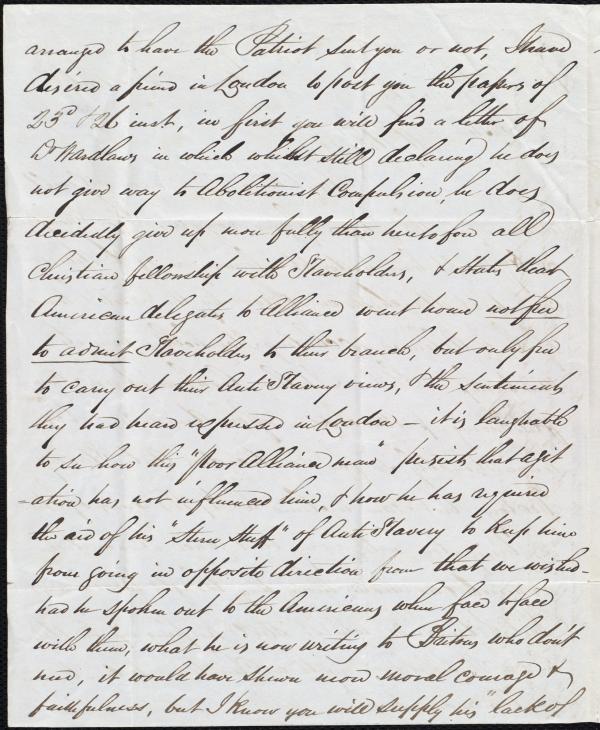 arranged to have the Patriot sent you or not, I have
desired a friend in London to post you the papers of
23d & 26 inst, in first you will find a letter of
Dr Wardlaws in which whilst still declaring he does
not give way to Abolitionist Compulsion, he does
decidedly give up more fully than heretofore all
Christian fellowship with Slaveholders, & states that
American delegates to Alliance went home not free
to admit Slaveholders to their branch, but only free
to carry out their Anti Slavery views, & the sentiments
they had heard expressed in London - it is laughable
to see how this "poor Alliance man" persists that agit
-ation has not influenced him, & how he has required
the aid of his "Stern Stuff" of Anti Slavery to keep him
from going in opposite direction from that we wished -
had he spoken out to the Americans when face to face
with them, what he is now writing to Britons who don't
need, it would have shewn more moral courage &
faithfulness, but I know you will supply his "lack of